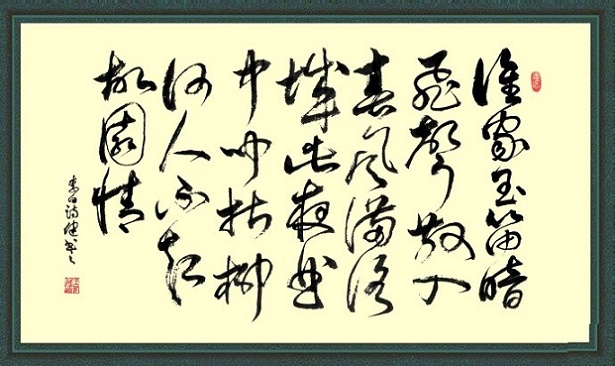 誰家玉笛暗
飛聲散入
春風滿洛
城此夜曲
中聞折柳
何人不起
故園情
李白詩